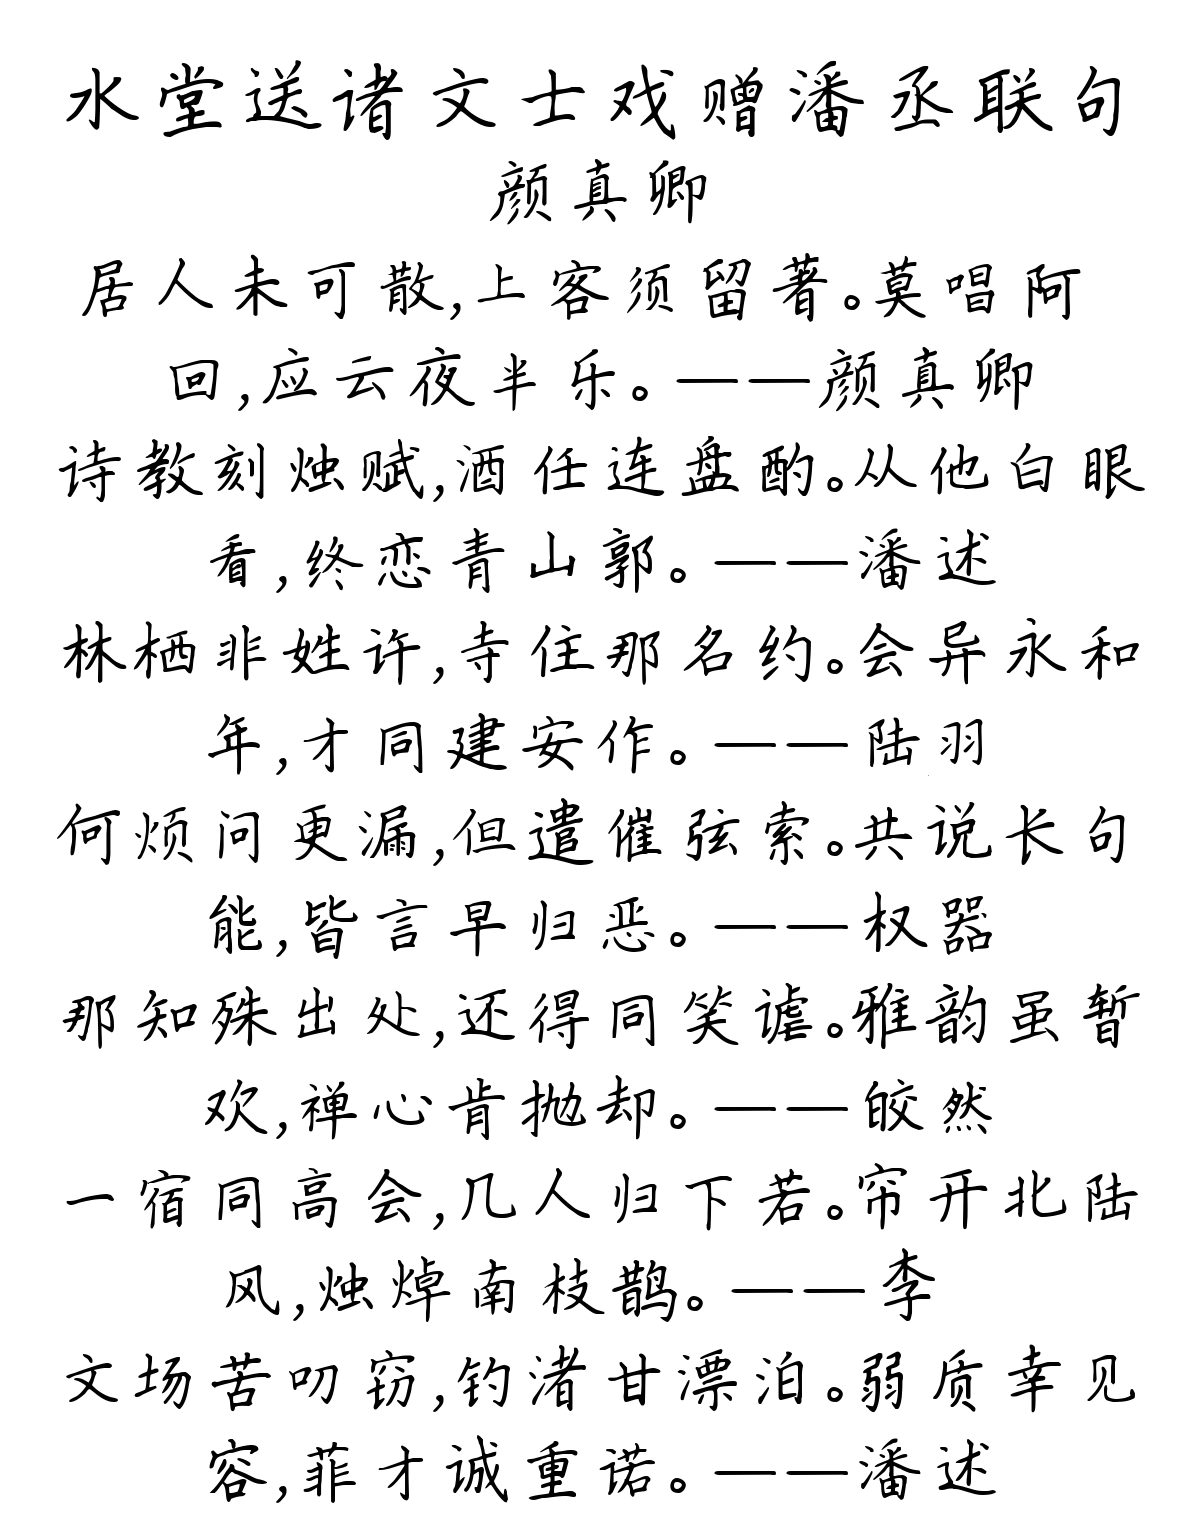 水堂送诸文士戏赠潘丞联句
颜真卿
居人未可散,上客须留著。莫唱阿
回,应云夜半乐。——颜真卿
诗教刻烛赋,酒任连盘酌。从他白眼
看,终恋青山郭。——潘述
林栖非姓许,寺住那名约。会异永和
年,才同建安作。——陆羽
何烦问更漏,但遣催弦索。共说长句
能,皆言早归恶。——权器
那知殊出处,还得同笑谑。雅韵虽暂
欢,禅心肯抛却。——皎然
一宿同高会,几人归下若。帘开北陆
风,烛焯南枝鹊。——李
文场苦叨窃,钓渚甘漂泊。弱质幸见
容,菲才诚重诺。——潘述